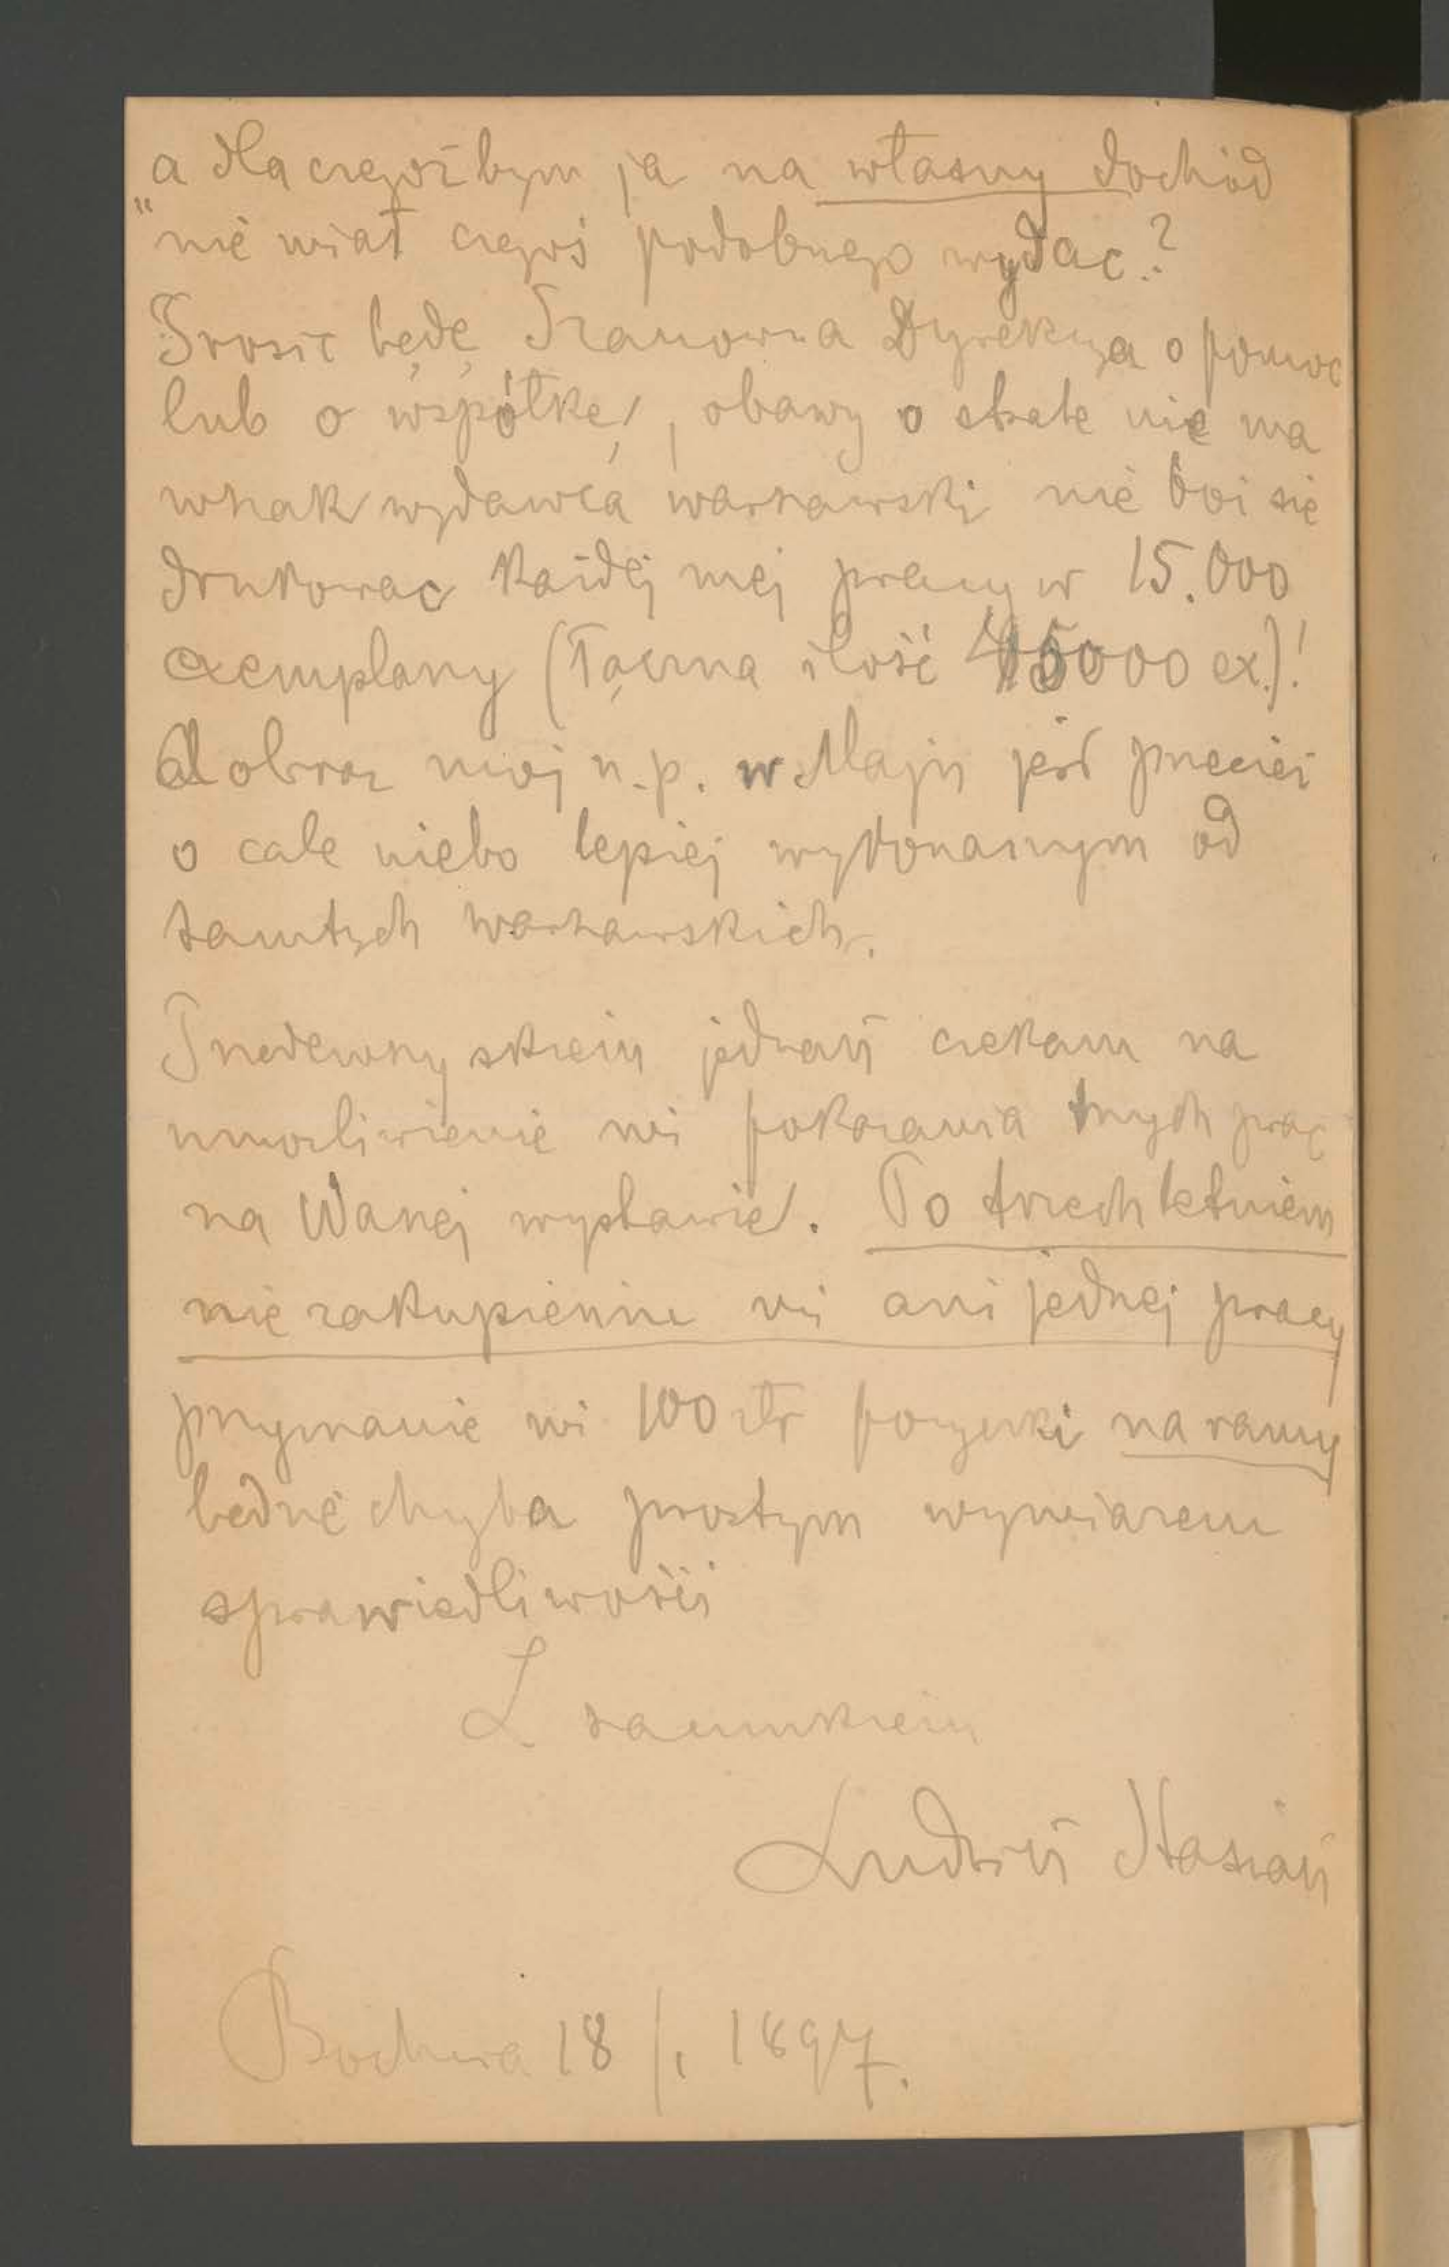 a dla czegożbym ja na własny dochód
"nie miał czegoś podobnego wydac.?
Prosić będę Szanowną Dyrekcyą o pomoc
lub o współkę, obawy o stratę nie ma
wszak wydawca warszawski nie boi się
drukowac każdej mej pracy w 15.000
exemplarzy (Łączna ilość 45000 ex.)!
A obraz moj n.p. w Maju jest przecież
o całe niebo lepiej wykonanym od
tamtych warszawskich.
Przedewszystkiem jednak czekam na
umożliwienie mi pokazania mych prac
na Waszej wystawie. Po trzechletniem
nie zakupieniu mi ani jednej pracy
przyznanie mi 100 złr pożyczki na ramy
będzie chyba prostym wymiarem
sprawiedliwości
Z szacunkiem
Ludwik Stasiak
Bochnia 18/1 1897.